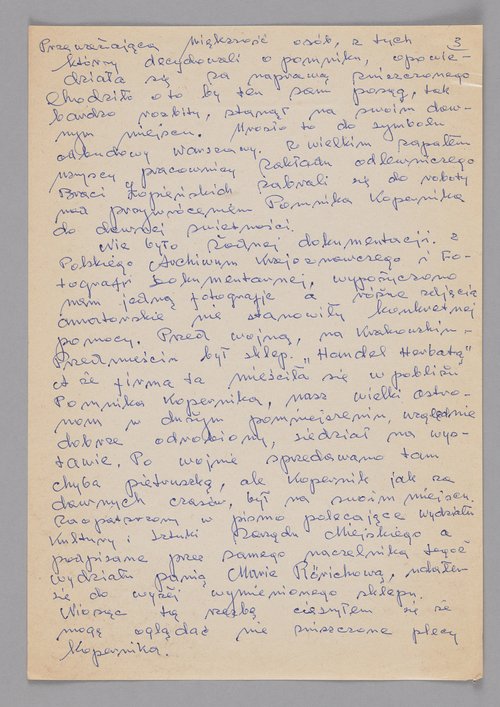 3
Przeważająca większość osób, z tych
którzy decydowali o pomniku, opowie-
działa się za naprawą zniszczonego
Chodziło o to by ten sam posąg, tak
bardzo rozbity, stanął na swoim daw-
nym miejscu. Urosło to do symbolu
odbudowy Warszawy. Z wielkim zapałem
wszyscy pracownicy Zakładu odlewniczego
Braci Łopieńskich zabrali się do roboty
nad przywróceniem Pomnika Kopernika
do dawnej świetności.
Nie było żadnej dokumentacji. Z
Polskiego Archiwum Krajoznawczego i Fo-
tografji Dokumentarnej, wypożyczono
nam jedną fotografję a różne zdjęcia
amatorskie nie stanowiły konkretnej
pomocy. Przed wojną, na Krakowskim-
Przedmieściu był sklep. "Handel Herbatą"
A że firma ta mieściła się w pobliżu
Pomnika Kopernika, nasz wielki astro-
nom w dużym pomniejszeniu, względnie
dobrze odrobiony, siedział na wys-
tawie. Po wojnie sprzedawano tam
chyba pietruszkę, ale Kopernik jak za
dawnych czasów, był na swoim miejscu.
Zaopatrzony w pismo polecające wydziału
Kultury i Sztuki Zarządu Miejskiego a
podpisane przez samego naczelnika tegoż
wydziału panią Marię, udałem
się do wyżej wymienionego sklepu.
Niosąc tą rzeźbę cieszyłem się że
mogę oglądać nie zniszczone plecy
Kopernika.